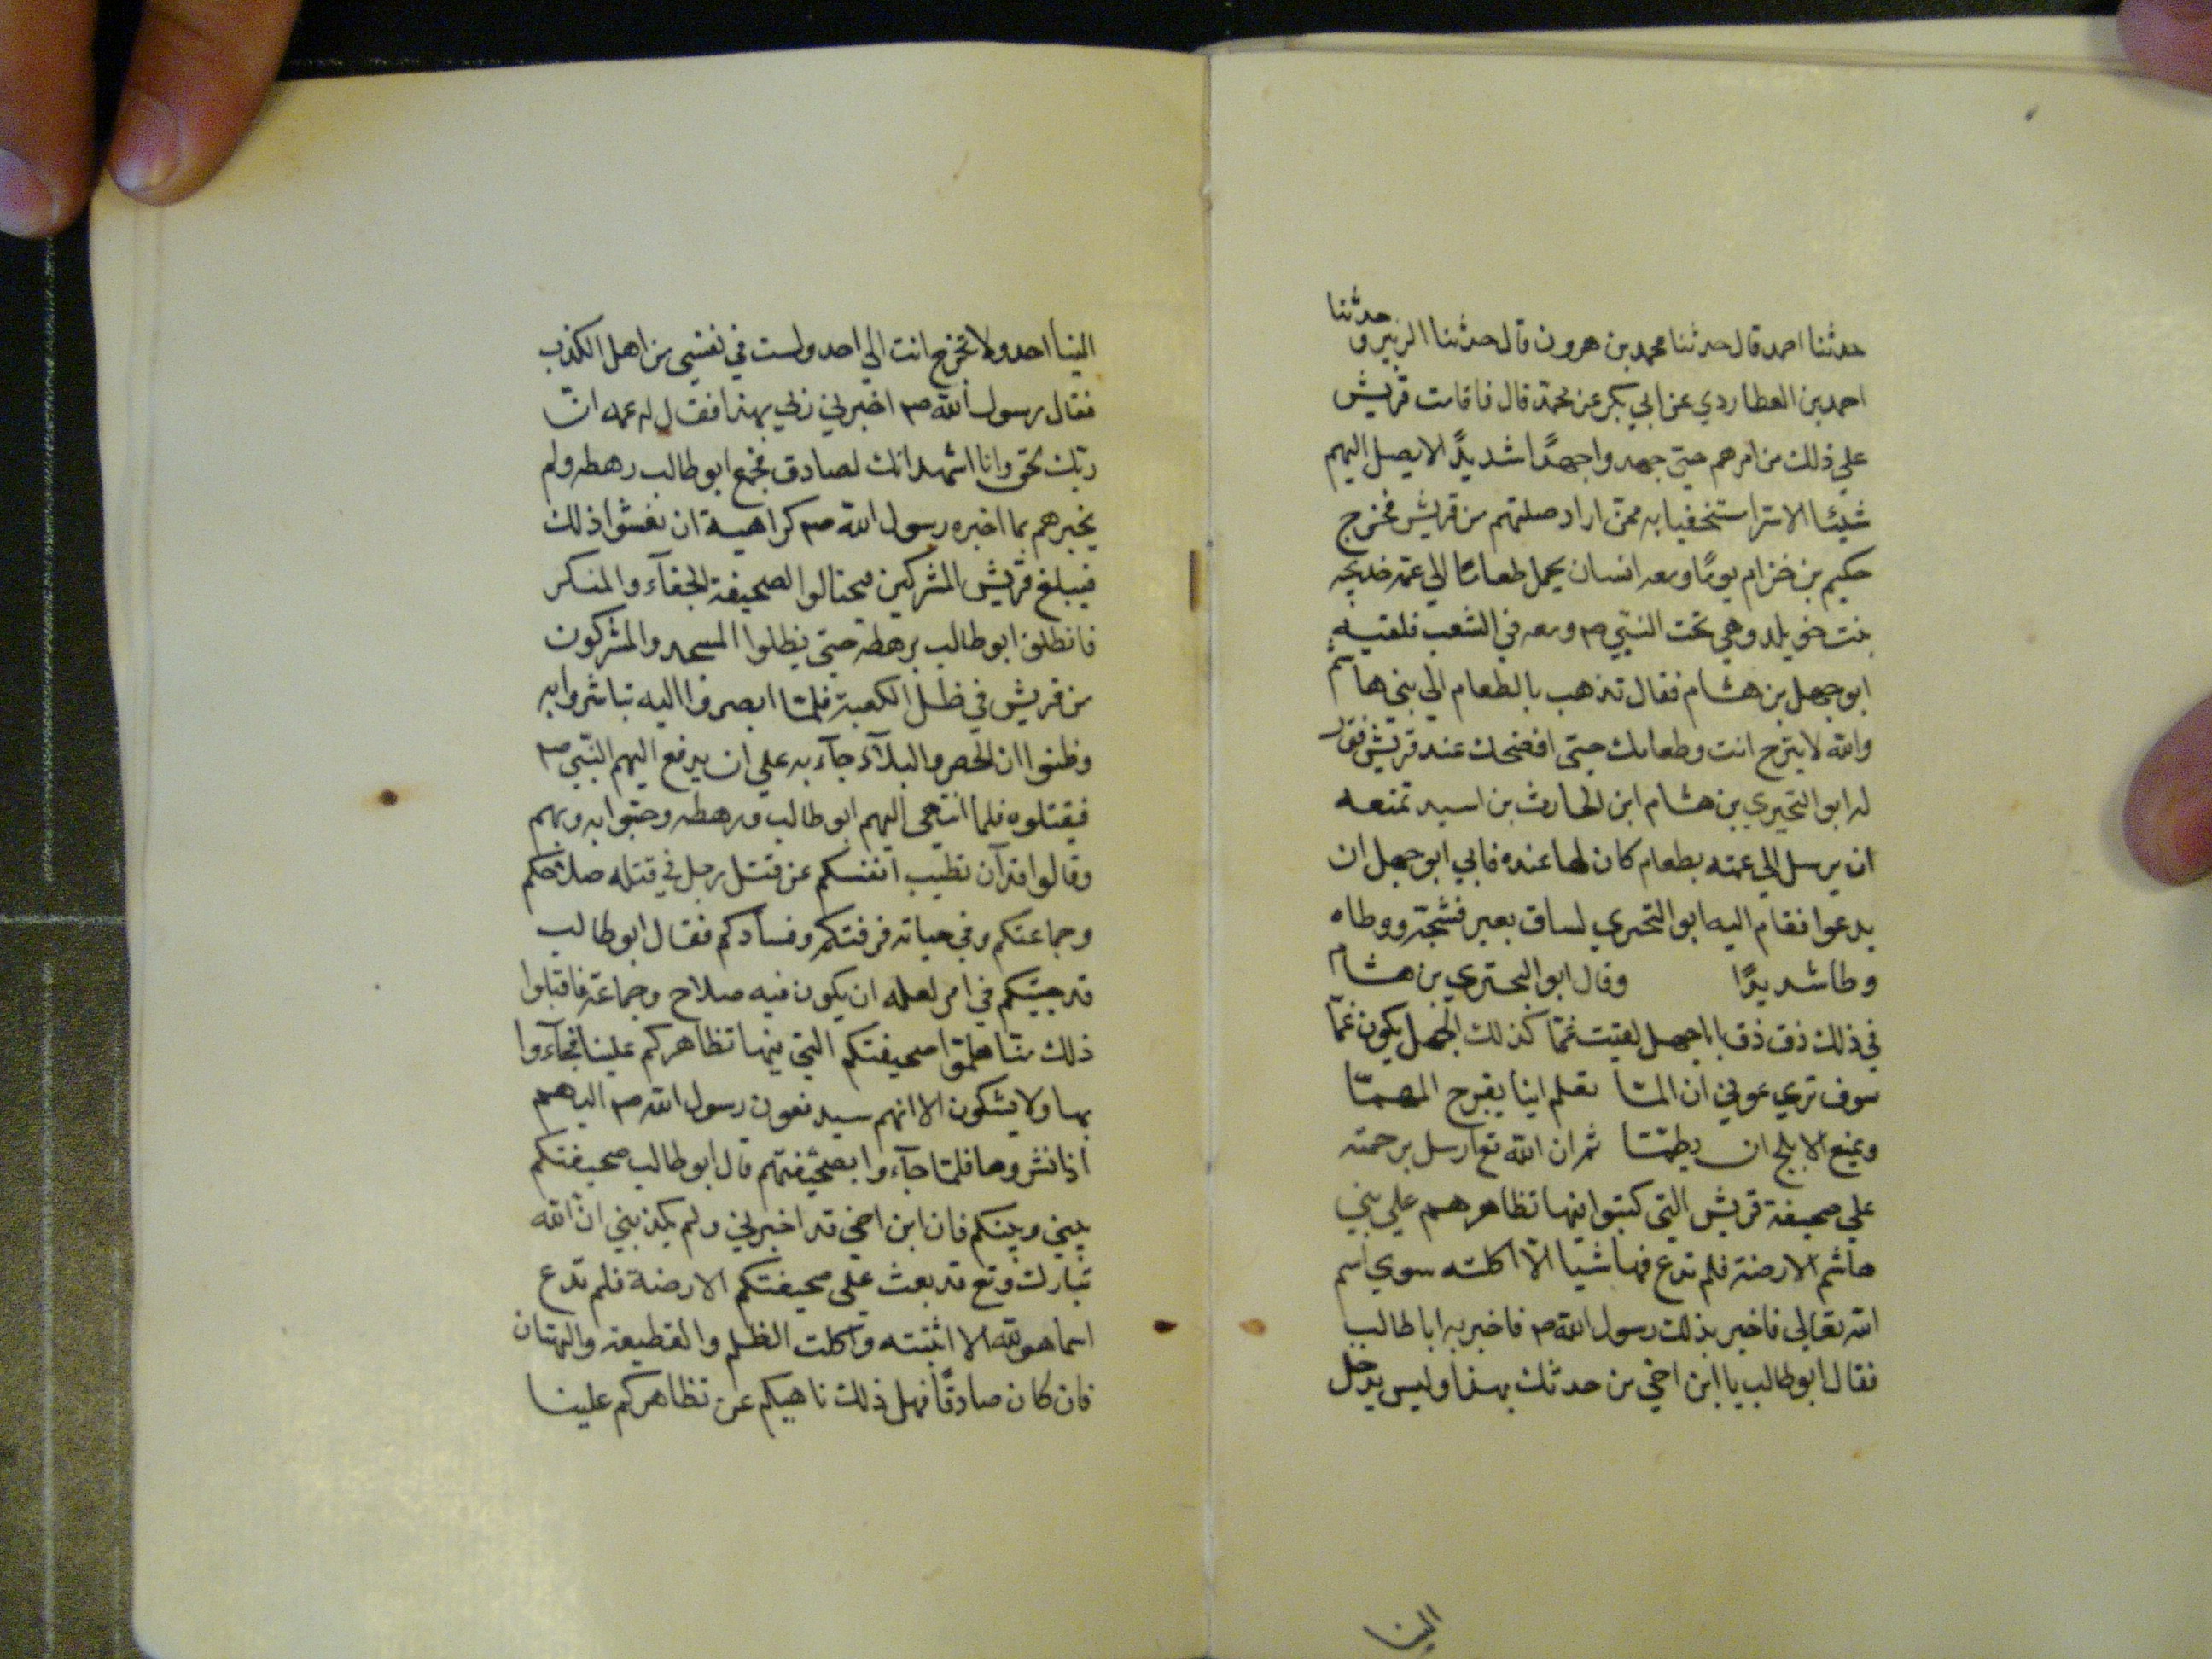 حدثنا
حدثنا احمد قال حدثنا محمد بن هرون قال حدثنا الزبير و
احمد بن العطاردي عن ابي بكر عن محمد قال فاقامت قريش
علي ذلك من امرهم حتى جهدوا جهدًا شديدًا لا يصل اليهم
شيئا الا سترا ستخفيا به ممن اراد صلتهم من قريش فخرج
حكيم بن خزام يومًا ومعه انسان يحمل طعامًا الي عمة خديجه
بنت خويلد وهي تحت النبي صم ومعه في الشعب فلقيه
ابو جهل بن هشام فقال تذهب بالطعام الي بني هاشم
والله لا يترح انت وطعامك حتى افضحك عند قريش فقال
له ابو التحيري بن هشام ابن الحارث بن اسيد تمنعه
ان يرسل الي عمته بطعام كان لها عنده فابي ابو جهل ان
يدعوا فقام اليه ابو التحيري لساق بعير فشجّه ووطاه
وطا شديدًا وقال ابو البحتري بن هشام
في ذلك ذق ذق يا باجهل لقيت غمّا كذلك الجهل يكون غمّا
سوف تري عوني ان المّا تعلم اينا يفرج المهمّا
ويمنع الابلج ان يطمّا ثم ان الله تع ارسل برحمته
علي صحيفة قريش التي كتبوا فيها تظاهرهم علي بني
هاشم الارضة فلم تدع فيها شيا الا اكلته سوي اسم
الله تعالي فاخبر بذلك رسول الله صم فاخبر به ابا طالب
فقال ابو طالب يا ابن اخي من حدثك بهذا وليس يدخل
الينا
الينا احد ولا تخرج انت الي احد ولست في نفسي من اهل الكذب
فقال رسول الله صم اخبرني ربي بهذا فقال له عمه انّ
ربّك لحق وانا اشهد انك لصادق فجمع ابو طالب رهطه ولم
يخبرهم بما اخبره رسول الله صم كراهية ان يفشوا ذلك
فيبلغ قريش المشركين فيحتالوا الصحيفة الجفآء والمنكر
فانطلق ابو طالب برهطه حتى يطلوا المسجد والمشركون
من قريش في ظل الكعبة فلمّا ابصروا اليه تباشروا به
وظنوا ان الحصر والبلآء جآء به علي ان يدفع اليهم النبي صم
فيقتلوه فلما انتهى اليهم ابو طالب ورهطه رحبّوا به وبهم
وقالوا قد آن تطيب انفسكم عن قتل رجل في قتله صلاحكم
وجماعتكم وفي حياته فرقتكم وفسادكم فقال ابو طالب
قد جيتكم في امر لعله ان يكون فيه صلاح وجماعة فاقبلوا
ذلك منّا هلمّوا صحيفتكم التي فيها تظاهركم علينا فجآءوا
بها ولا يشكون الا انهم سيدفعون رسول الله صم اليهم
اذا نشروها فلمّا جآءوا بصحيفتهم قال ابو طالب صحيفتكم
بيني وبينكم فان ابن اخي قد اخبرني ولم يكذبني انّ الله
تبارك وتع قد بعث علي صحيفتكم الارضة فلم تدع
اسما هو لله الا اثبتته واكلت الظلم والقطيعة والبهتان
فان كان صادقًا فهل ذلك ناهيكم عن تظاهركم علينا